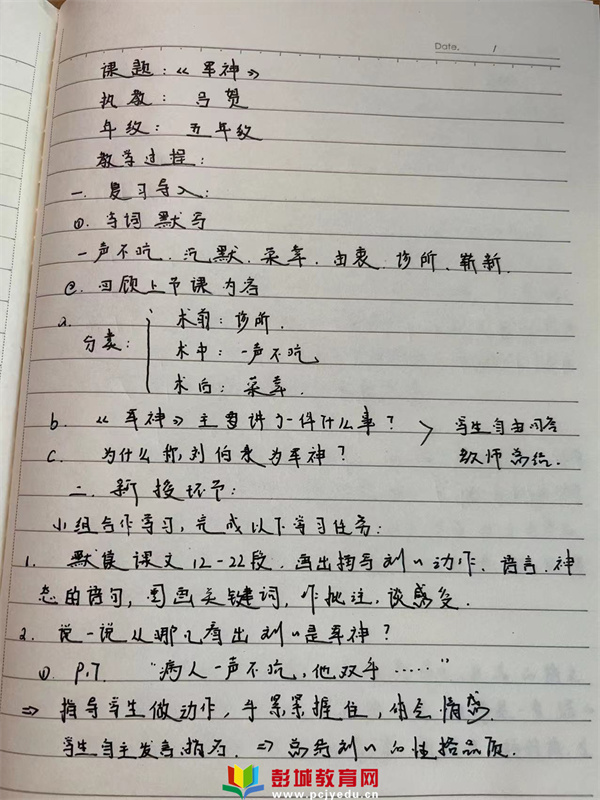 Date. /
课题:《军神》
执教:马贺
年级:五年级
教学过程:
一. 复习导入:
①. 字词默写
一声不吭. 沉默. 菜市. 由衷. 诊所. 崭新.
②. 回顾上节课内容
a. 分类: 术前:诊所.
术中:一声不吭.
术后:
b. 《军神》主要讲了一件什么事? 学生自由回答
c. 为什么称刘伯承为军神? 教师总结.
二. 新授环节:
小组合作学习,完成以下学习任务:
1. 默读课文12-22段.画出描写刘〃动作、语言、神
态的语句,圈画关键词,作批注,谈感受.
2. 说一说从哪儿看出刘〃是军神?
①. P.7. "病人一声不吭,他双手……"
⇒ 指导学生做动作,手紧紧握住,体会情感.
学生自主发言 ⇒ 总结刘〃的性格品质.
彭城教育网
www.pcjyedu.cn